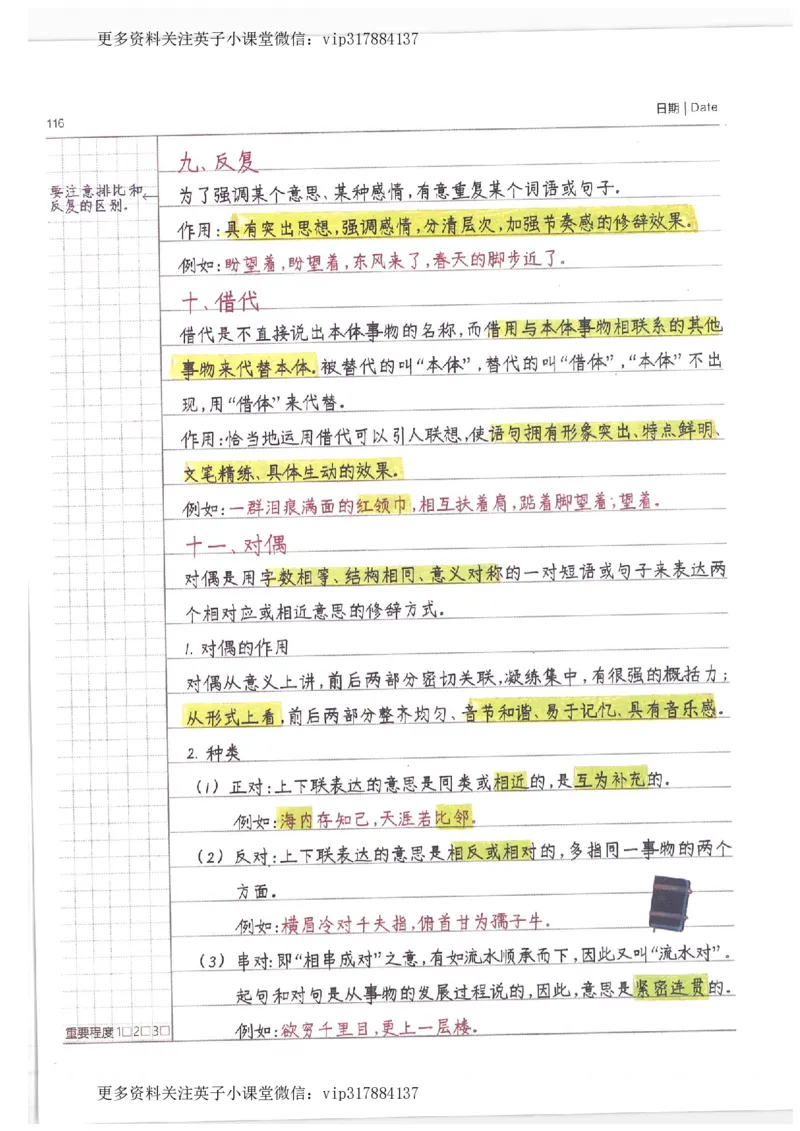 更多资料关注英子小课堂微信：vip317884137
日期 | Date
116
九、反复
要注意排比和
反复的区别。
为了强调某个意思、某种感情，有意重复某个词语或句子。
作用：具有突出思想，强调感情，分清层次，加强节奏感的修辞效果。
例如：盼望着，盼望着，东风来了，春天的脚步近了。
十、借代
借代是不直接说出本体事物的名称，而借用与本体事物相联系的其他
事物来代替本体。被替代的叫“本体”，替代的叫“借体”，“本体”不出
现，用“借体”来代替。
作用：恰当地运用借代可以引人联想，使语句拥有形象突出、特点鲜明、
文笔精练、具体生动的效果。
例如：一群泪痕满面的红领巾，相互扶着肩，踮着脚望着；望着。
十一、对偶
对偶是用字数相等、结构相同、意义对称的一对短语或句子来表达两
个相对应或相近意思的修辞方式。
1. 对偶的作用
对偶从意义上讲，前后两部分密切关联，凝练集中，有很强的概括力；
从形式上看，前后两部分整齐均匀、音节和谐、易于记忆、具有音乐感。
2. 种类
（1）正对：上下联表达的意思是同类或相近的，是互为补充的。
例如：海内存知己，天涯若比邻。
（2）反对：上下联表达的意思是相反或相对的，多指同一事物的两个
方面。
例如：横眉冷对千夫指，俯首甘为孺子牛。
（3）串对：即“相串成对”之意，有如流水顺承而下，因此又叫“流水对”。
起句和对句是从事物的发展过程说的，因此，意思是紧密连贯的。
例如：欲穷千里目，更上一层楼。
重要程度 1□2□3□
更多资料关注英子小课堂微信：vip317884137